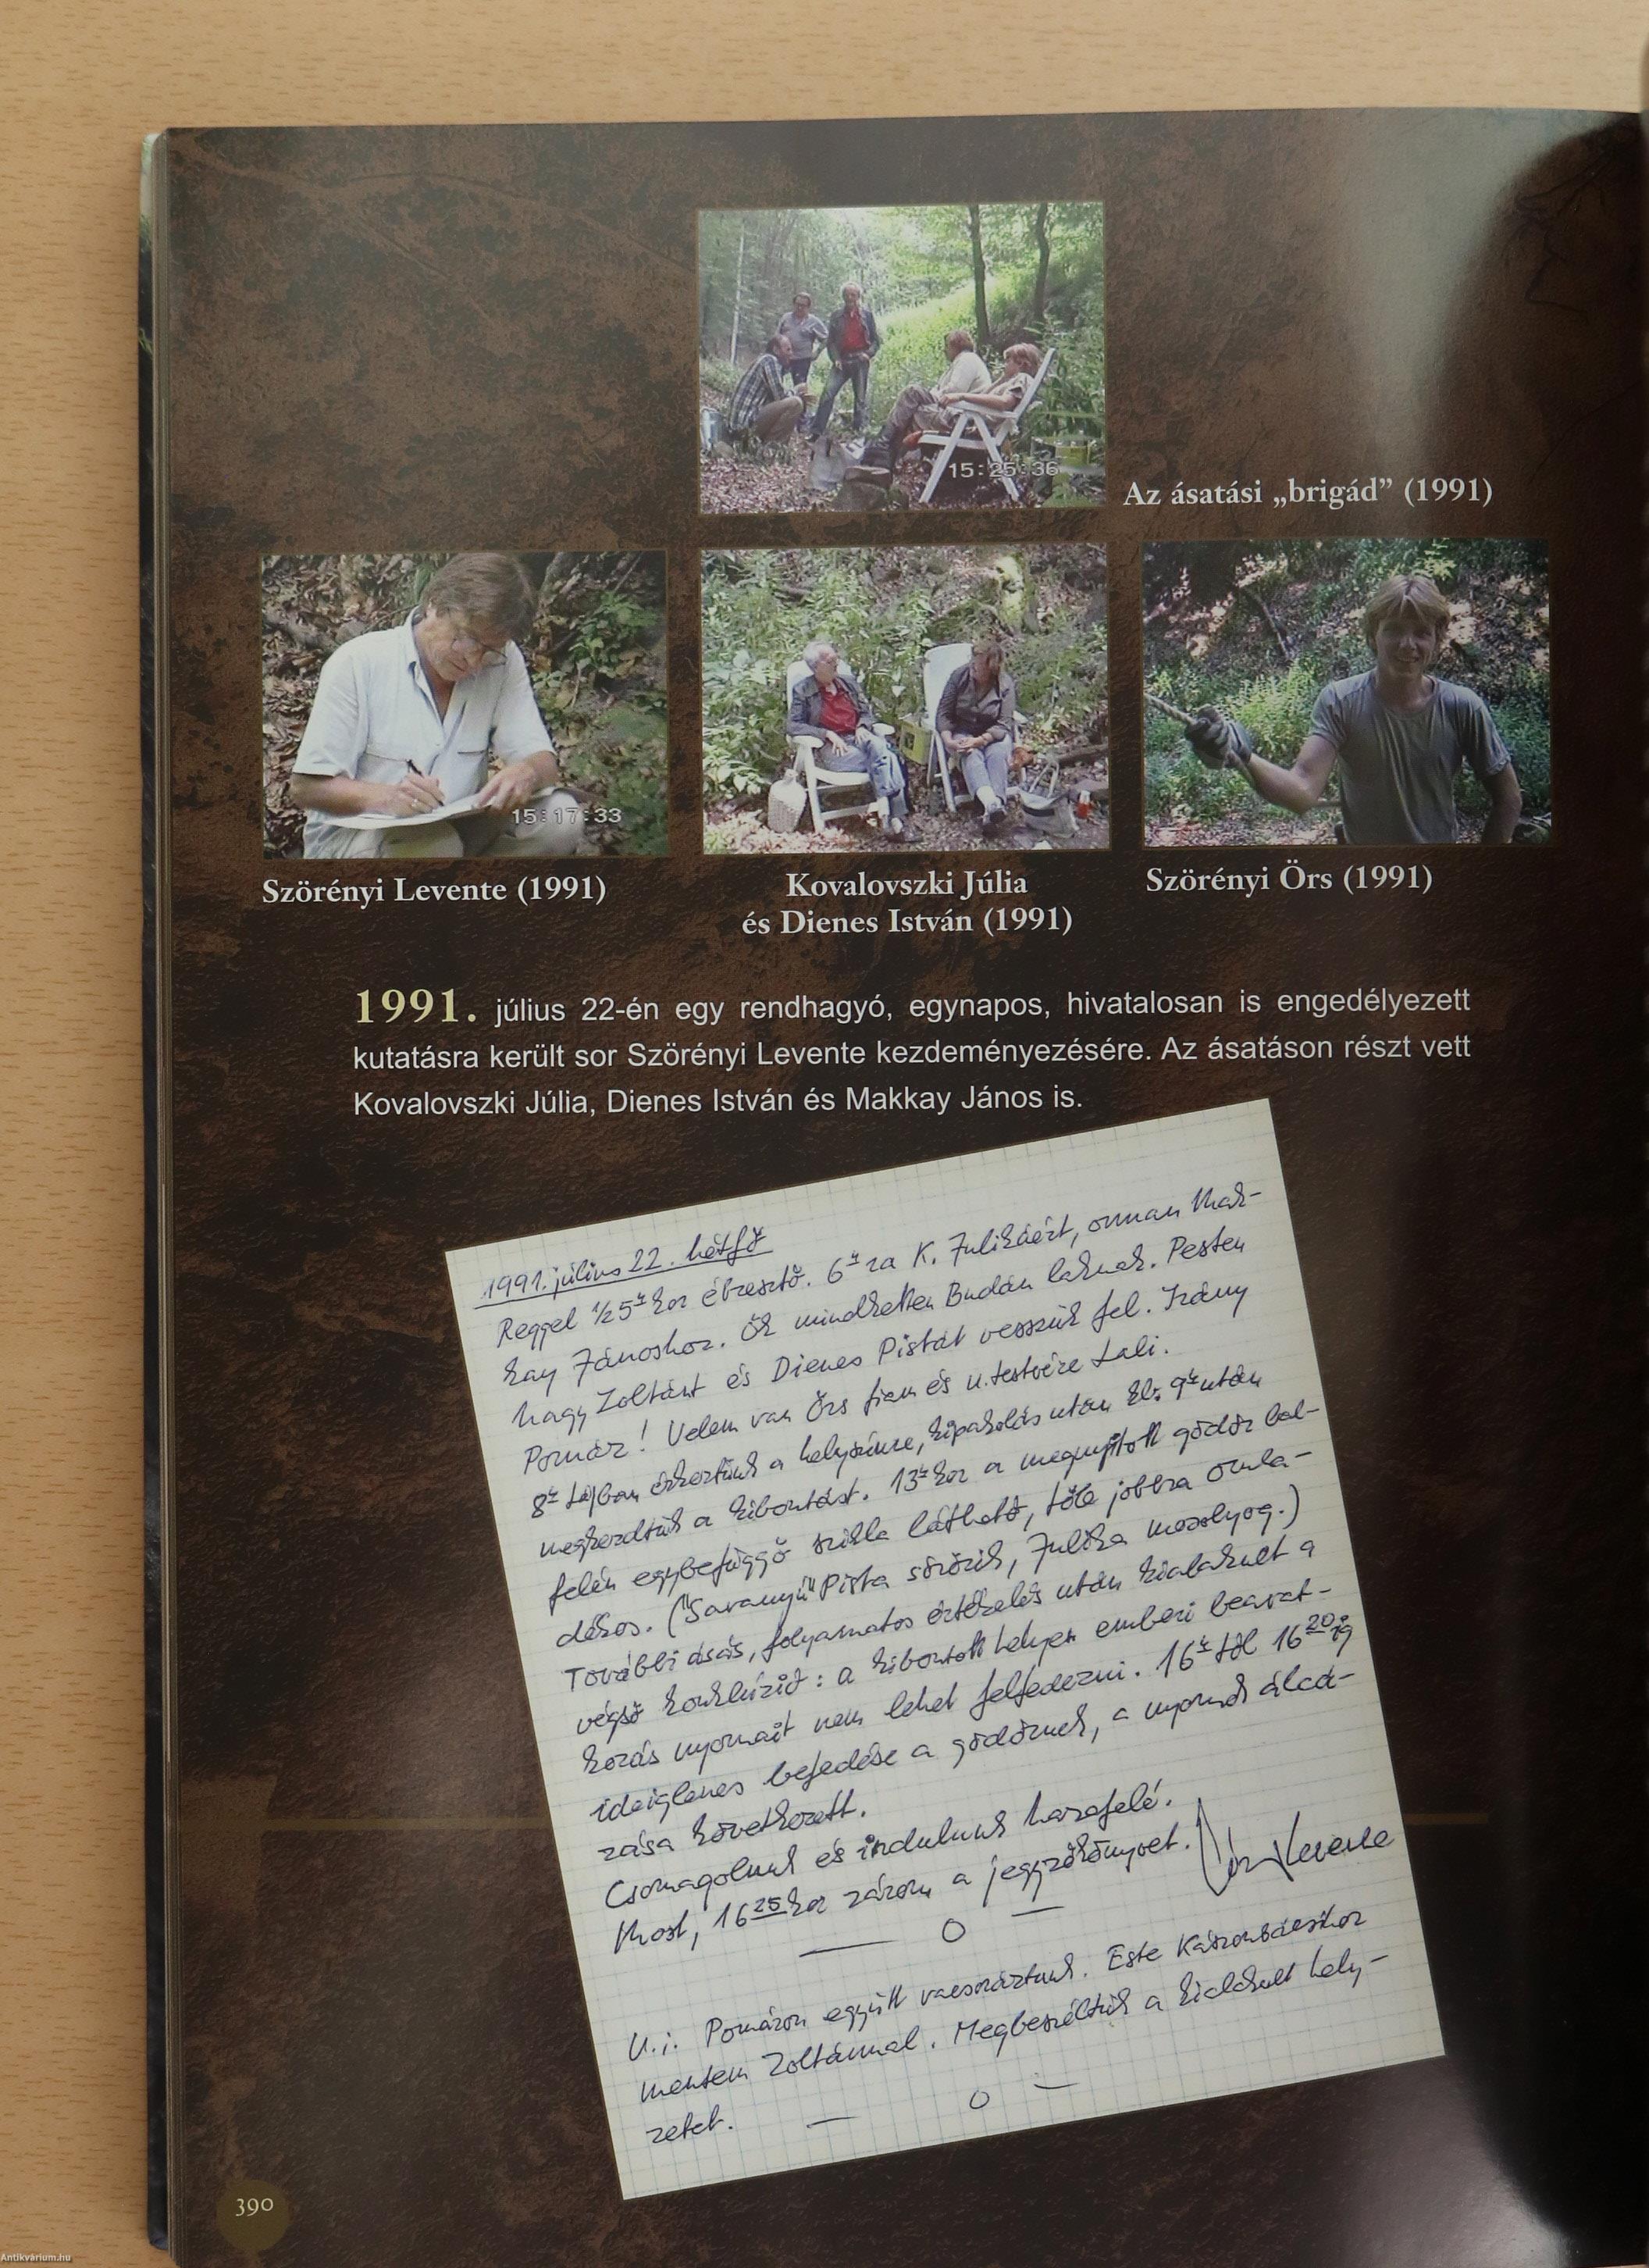 15:25:36
Az ásatási „brigád” (1991)
15:17:33
Szörényi Levente (1991)
Kovalovszki Júlia
és Dienes István (1991)
Szörényi Örs (1991)
1991. július 22-én egy rendhagyó, egynapos, hivatalosan is engedélyezett
kutatásra került sor Szörényi Levente kezdeményezésére. Az ásatáson részt vett
Kovalovszki Júlia, Dienes István és Makkay János is.
1991. július 22. hétfő
Reggel 1/2 5h kor ébresztő. 6h ra K. Julikáért, onnan Mak-
kay Jánoshoz. Ők mindketten Budán laknak. Pesten
Nagy Zoltánt és Dienes Pistát vesszük fel. Irány
Pomáz! Velem van Örs fiam és u. testvére Lali.
8h tájban érkeztünk a helyszínre, kipakolás után kb. 9h után
megkezdtük a kibontást. 13h kor a megnyitott gödör bal-
felén egybefüggő szikla látható, tőle jobbra omla-
dékos. ("Savanyú" Pista sörözik, Julika mosolyog.)
További ásás, folyamatos értékelés után kialakult a
végső konklúzió: a kibontott helyen emberi beavat-
kozás nyomait nem lehet felfedezni. 16h tól 16 20 ig
ideiglenes befedése a gödörnek, a nyomok álcá-
zása következett.
Csomagolunk és indulunk hazafelé.
Most, 16 25 kor zárom a jegyzőkönyvet.
Levente
— O —
U.i. Pomázon együtt vacsoráztunk. Este
mentem Zoltánnal. Megbeszéltük a kialakult hely-
zetet. — O —
390
Antikvárium.hu